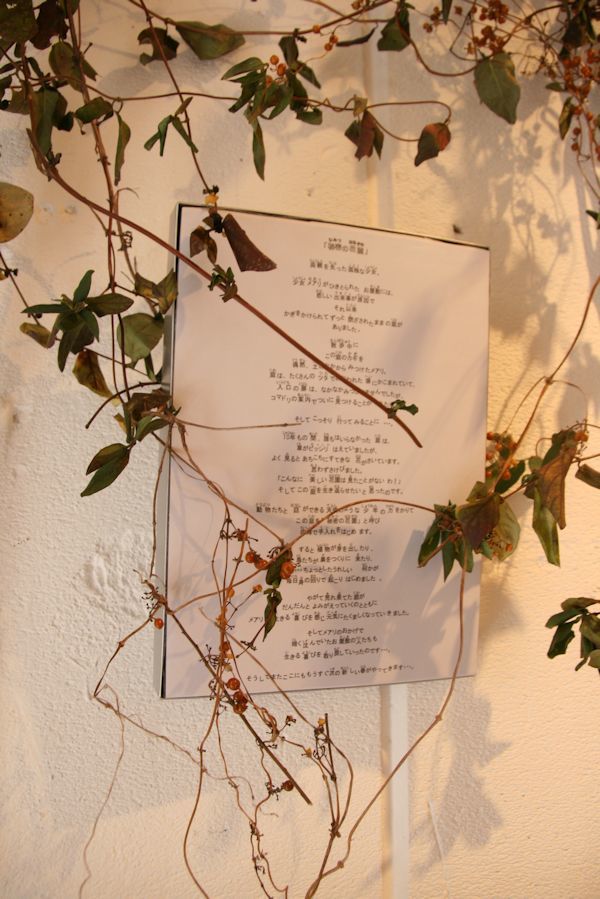 「秘密の花園」
両親を失った孤独な少女、
少女メアリがひきとられた お屋敷には、
悲しい出来事が原因で
それ以来
かぎをかけられてずっと 閉ざされたままの庭が
ありました。
散歩中に
この庭の
偶然、 からみつけたメアリ。
庭は、たくさんの ツタで れた 塀にかこまれていて、
入口の扉は、なかなかみつ せんでしたが、
コマドリの案内でついに見つけることが
そして こっそり 行ってみることに ・・・。
10年もの間、誰もはいらなかった 庭は、
草がビッシリ はえていましたが、
よく見ると あちこちにすてきな 花がさいています。
思わずさけびました。
「こんなに 美しい花園は見たことがない わ！」
そして この庭を生き返らせたいと 思ったのです。
動物たちと 話ができる ような 少年の力をかりて
この庭を「秘密の花園」と呼び
で手入れをはじめ ます。
すると 植物が芽を出したり、
鳥たちが巣をつくりに 来たり、
ちょっとしたうれしい 何かが
毎日身の回りで 起こり はじめました 。
やがて荒れ果てた庭が
だんだんと よみがえっていくのとともに
メアリ きる喜びを感じ元気にたくましくなっていきました。
そしてメアリのおかげで
暗く沈んでいたお屋敷の人たちも
生きる喜びを取り戻していったのです・・・。
そうしてまたここにももうすぐ次の新しい春がやってきます・・・。